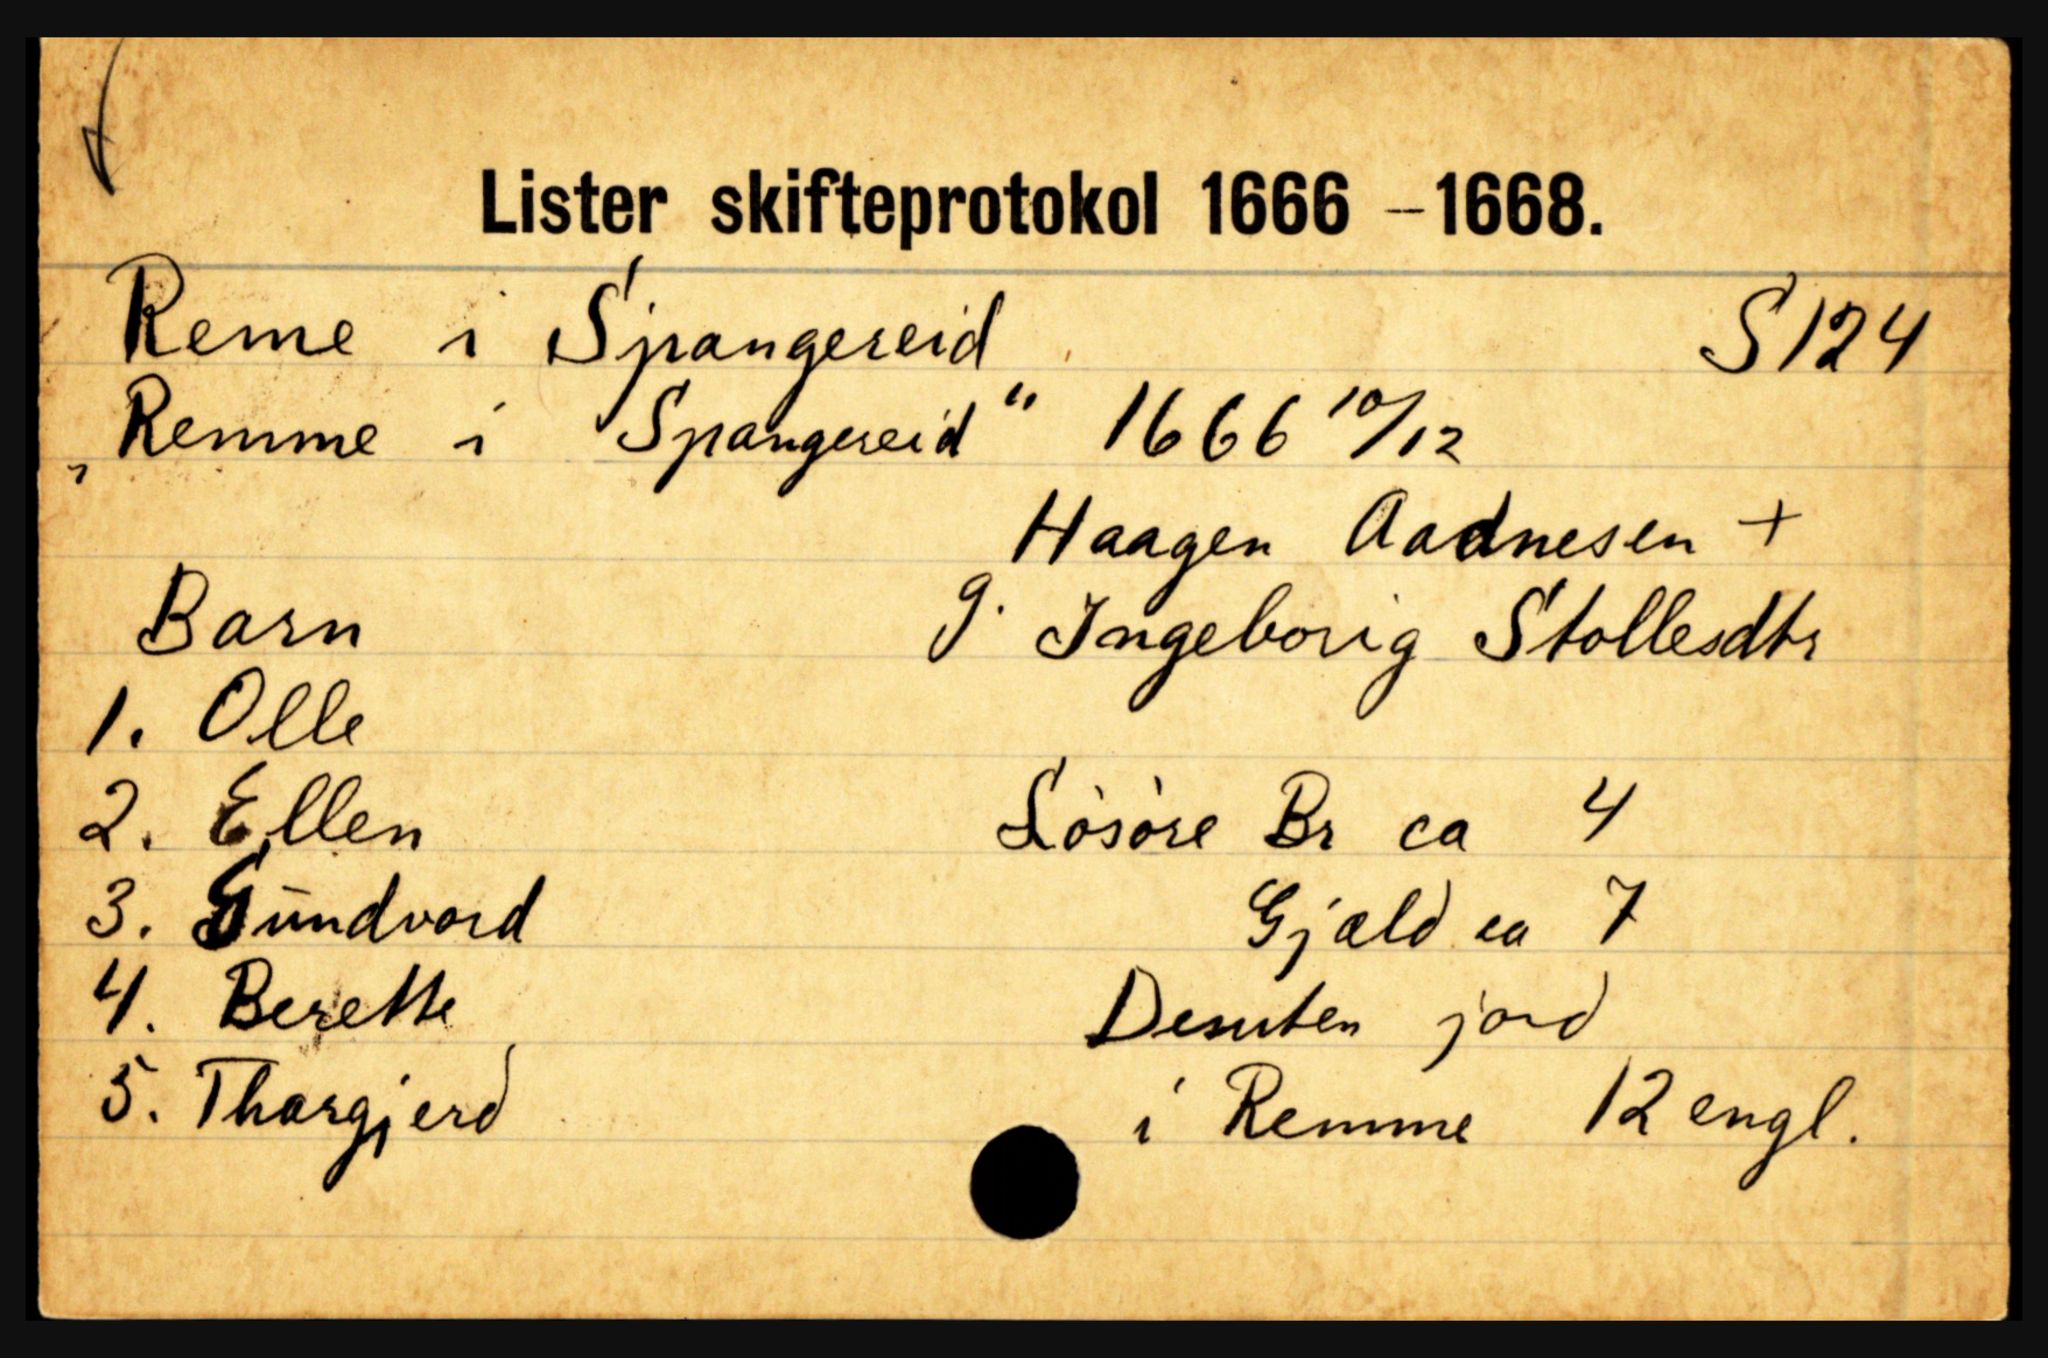 Lister skifteprotokol 1666 – 1668.
Reme i Spangereid S 124
„Remme i Spangereid“ 1666 10/12
Haagen Aadnesen +
Barn g. Ingeborig Stollesdtr
1. Olle
2. Ellen Løsøre Br ca 4
3. Gundvord Gjæld ca 7
4. Berette Desuten jord
5. Thorgjerd i Remme 12 engl.